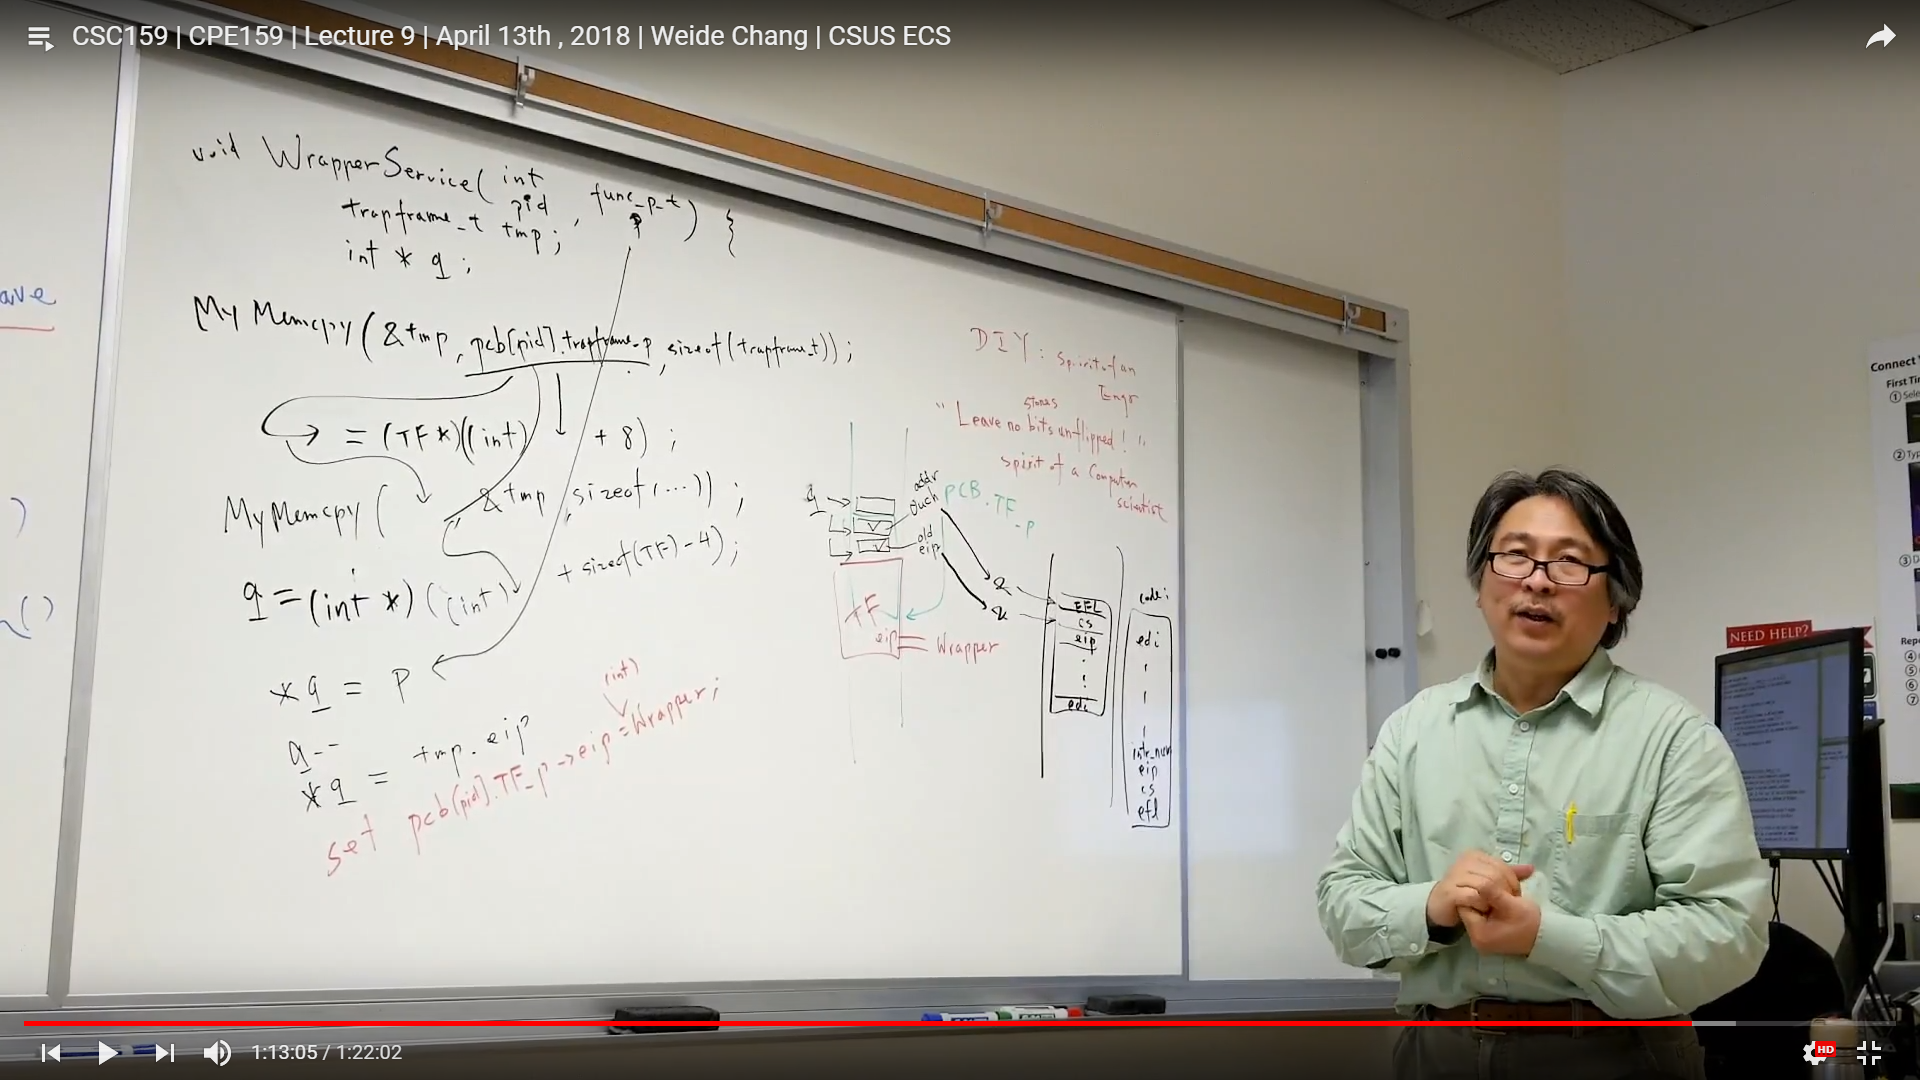 CSC159 | CPE159 | Lecture 9 | April 13th , 2018 | Weide Chang | CSUS ECS
void WrapperService( int pid , func_p_t p ) {
trapframe_t tmp;
int * q ;
MyMemcpy(&tmp, pcb[pid].trapframe_p, sizeof(trapframe_t));
= (TF*)((int) + 8) ;
MyMemcpy( , &tmp, sizeof(...)) ;
q = (int *) ((int) + sizeof(TF) - 4);
*q = p
q--
*q = tmp.eip
set pcb[pid].TF_p->eip = (int) Wrapper;
ave
)
()
DIY: spirit of an
Engr
stones
"Leave no bits unflipped! "
spirit of a Computer
scientist
q
addr
Ouch
PCB.TF_p
old
eip
TF
eip
Wrapper
&
&
EFL
cs
eip
edi
code:
edi
intr_num
eip
cs
efl
Connect
First Ti
① Sele
② Typ
③ D
Repe
④
⑤
⑥
⑦
NEED HELP?
1:13:05 / 1:22:02
HD